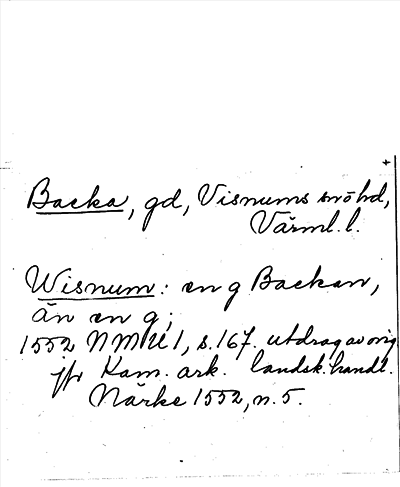 Backa, gd, Visnums snö hd,
Värml. l.
Wisnum: en g Backan,
än en g;
1552 NMU 1, s. 167. utdrag av orig
jfr Kam. ark. landsk. handl.
Närke 1552, n. 5.